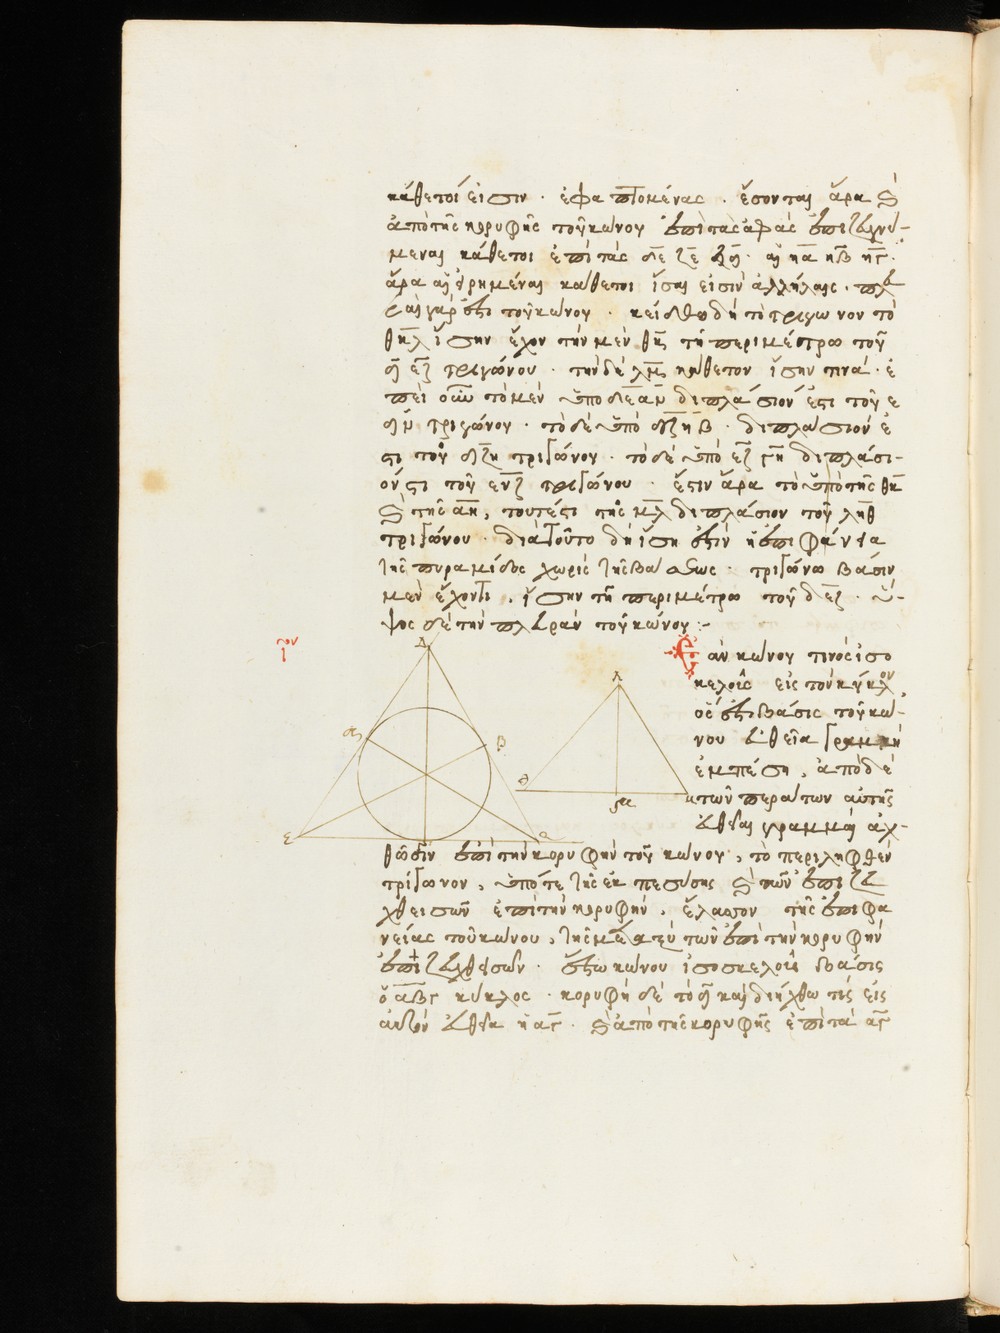 κάθετοί εἰσιν · ἐφαπτομένας · ἔσονται ἄρα καὶ
ἀπὸ τῆς κορυφῆς τοῦ κώνου ἐπὶ τὰς ἁφὰς ἐπιζευγνύ-
μεναι κάθετοι ἐπὶ τὰς δε ζε ζδ · αἱ ηα ηβ ηγ ·
ἄρα αἱ εἰρημέναι κάθετοι ἴσαι εἰσὶν ἀλλήλαις · πλευ
ραὶ γάρ εἰσι τοῦ κώνου · κείσθω δὴ τὸ τρίγωνον τὸ
θκλ ἴσην ἔχον τὴν μὲν θκ τῇ περιμέτρῳ τοῦ
δεζ τριγώνου · τὴν δὲ λμ κάθετον ἴσην τινα · ἐ
πεὶ οὖν τὸ μὲν ὑπὸ δε αη διπλάσιόν ἐστι τοῦ ε
δη τριγώνου · τὸ δὲ ὑπὸ δζ ηβ · διπλάσιον ἐ
στι τοῦ δζη τριγώνου · τὸ δὲ ὑπὸ εζ γη διπλάσι-
όν στι τοῦ εηζ τριγώνου · ἔστιν ἄρα τὸ ὑπὸ τῆς θκ
καὶ τῆς αη, τουτέστι τῆς μλ διπλάσιον τοῦ ληθ
τριγώνου · διὰ τοῦτο δὴ ἴση ἐστὶν ἡ ἐπιφάνεια
τῆς πυραμίδος χωρὶς τῆς βάσεως · τριγώνω βάσιν
μὲν ἔχοντι, ἴσην τῇ περιμέτρω τοῦ δεζ · ὕ-
ψος δὲ τὴν πλευρὰν τοῦ κώνου :-
Ἐὰν κώνου τινὸς ἰσο
κελοῦς εἰς τὸν κύκλον,
ὅς ἐστι βάσις τοῦ κώ-
νου εὐθεῖα γραμμὴ
ἐμπέση, ἀπὸ δὲ
τῶν περάτων αὐτῆς
εὐθεῖαι γραμμαὶ ἀχ-
θῶσιν ἐπὶ τὴν κορυφὴν τοῦ κώνου, τὸ περιληφθὲν
τρίγωνον, ὑπό τε τῆς ἐμπεσύσης καὶ τῶν ἐπιζευ
χθεισῶν ἐπὶ τὴν κορυφὴν, ἔλασσον τῆς ἐπιφα
νείας τοῦ κώνου, τῆς μεταξὺ τῶν ἐπὶ τὴν κορυφὴν
ἐπιζευχθεισῶν · ἔστω κώνου ἰσοσκελοῦς βάσις
ὁ αβγ κύκλος · κορυφὴ δὲ τὸ δ καὶ διήχθω τὶς εἰς
αὐτὸν εὐθεῖα ἡ αγ · καὶ ἀπὸ τῆς κορυφῆς ἐπὶ τὰ αγ